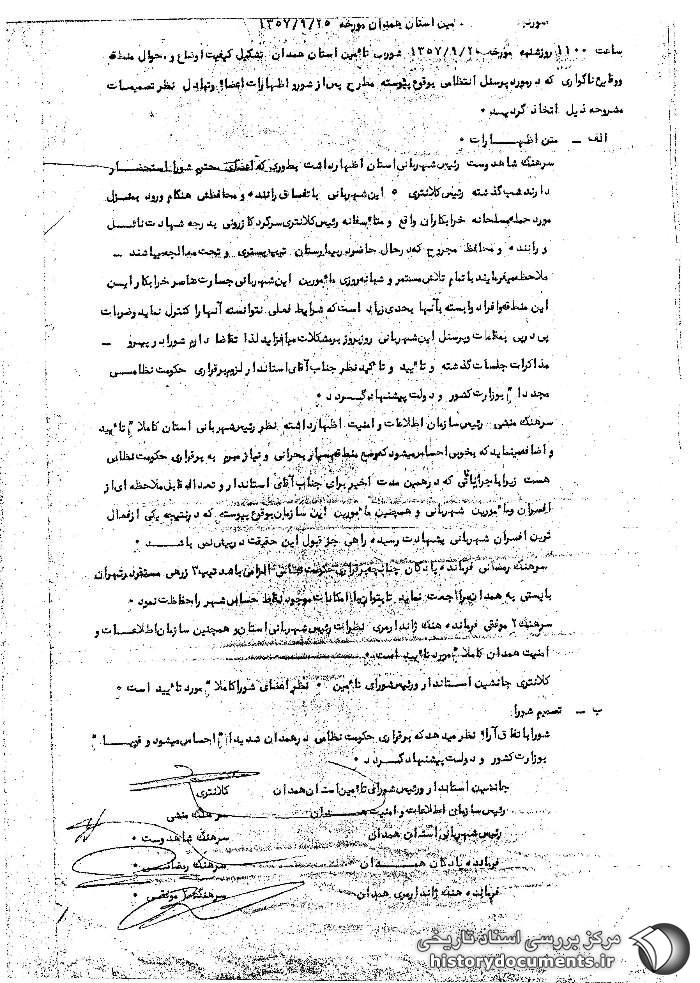 تامین استان همدان مورخه ۱۳۵۷/۹/۲۵
ساعت ۱۱۰۰ روزشنبه مورخه ۱۳۵۷/۹/۲ شورای تامین استان همدان تشکیل کیفیت اوضاع و احوال منطقه
ووقایع ناگواری که درمورد پرسنل انتظامی بوقوع پیوسته مطرح پس از شور و اظهارات اعضا وتبادل نظر تصمیمات
مشروحه ذیل اتخاذ گردید .
الف ـ متن اظهارات .
سرهنگ شاهدوست رئیس شهربانی استان اظهارداشت بطوری که اعضای محترم شورا استحضار
دارند شب گذشته رئیس کلانتری ۵ این شهربانی باتفاق راننده و محافظش هنگام ورود بمنزل
مورد حمله مسلحانه خرابکاران واقع و متاسفانه رئیس کلانتری سرگرد کازرونی بدرجه شهادت نائل
و راننده و محافظ مجروح که درحال حاضر دربیمارستان تیپ بستری و تحت معالجه میباشند ـ
ملاحظه میفرمایند با تمام تلاش مستمر و شبانه روزی مامورین این شهربانی جسارت عناصر خرابکار این
این منطقه وافراد وابسته بآنها بحدی زیاد است که شرایط فعلی نتوانسته آنها را کنترل نماید وضربات
پی درپی بمقامات وپرسنل این شهربانی روزبروز برمشکلات میافزاید لذا تقاضا دارم شورا در پیرو ـ
مذاکرات جلسات گذشته و تایید و تاکید نظر جناب آقای استاندار لزوم برقراری حکومت نظامی
مجددا" بوزارت کشور و دولت پیشنهاد گردد .
سرهنگ منشی رئیس سازمان اطلاعات و امنیت اظهارداشته نظر رئیس شهربانی استان کاملا" تایید
و اضافه مینماید که بخوبی احساس میشود که وضع منطقه بسیار بحرانی و نیاز مبرم به برقراری حکومت نظامی
هست زیرا باجرایاتی که درهمین مدت اخیر برای جناب آقای استاندار و تعداد قابل ملاحظه ای از
افسران ومامورین شهربانی و همچنین مامورین این سازمان بوقوع پیوسته که درنتیجه یکی از فعال
ترین افسران شهربانی بشهادت رسیده راهی جز قبول این حقیقت درپیش نمی باشد .
سرهنگ رمضانی فرمانده پادگان چنانچه برقراری حکومت نظامی الزامی باشد تیپ ۳ زرهی مستقر در تهران
بایستی به همدان مراجعت نماید تا بتوان با امکانات موجود نقاط حساس شهر را حفاظت نمود .
سرهنگ ۲ موثقی فرمانده هنگ ژاندارمری نظرات رئیس شهربانی استان و همچنین سازمان اطلاعات و
امنیت همدان کاملا" مورد تایید است .
کلانتری جانشین استاندار ورئیس شورای تامین . نظر اعضای شورا کاملا" مورد تایید است .
ب ـ تصمیم شورا
شورا باتفاق آراء نظر میدهد که برقراری حکومت نظامی درهمدان شدیدا" احساس میشود و قویا"
بوزارت کشور و دولت پیشنهاد گردد .
جانشین استاندار ورئیس شورای تامین استان همدان کلانتری
رئیس سازمان اطلاعات و امنیت همدان سرهنگ منشی
رئیس شهربانی استان همدان سرهنگ شاهدوست .
فرمانده پادگان همدان سرهنگ رمضانی .
فرمانده هنگ ژاندارمری همدان سرهنگ ۲ موثقی .
مرکز بررسی اسناد تاریخی
historydocuments.ir